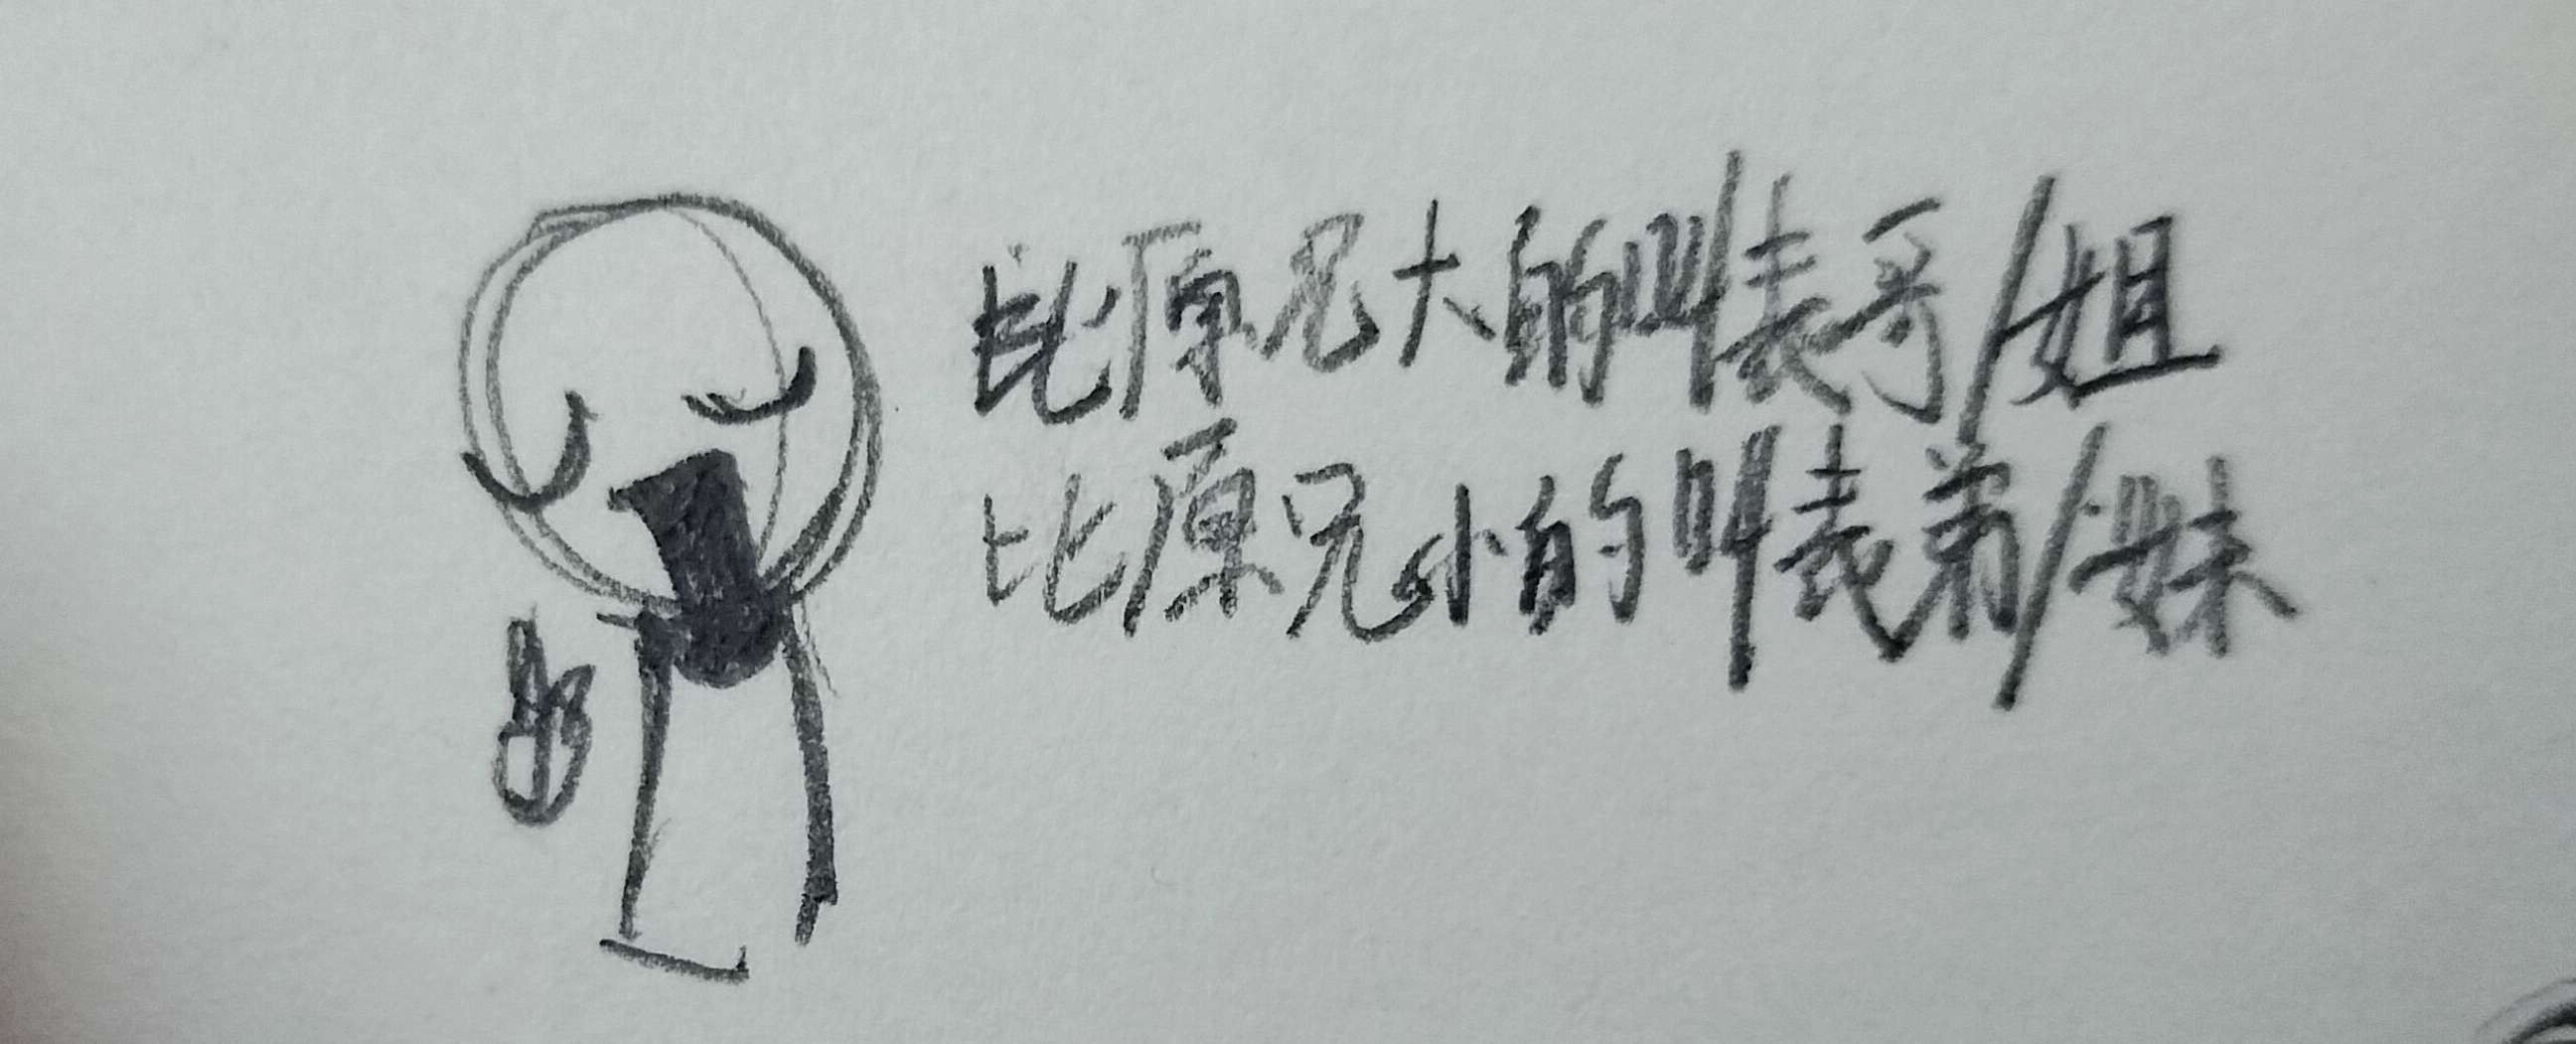 比原兄大的叫表哥/姐
比原兄小的叫表弟/妹